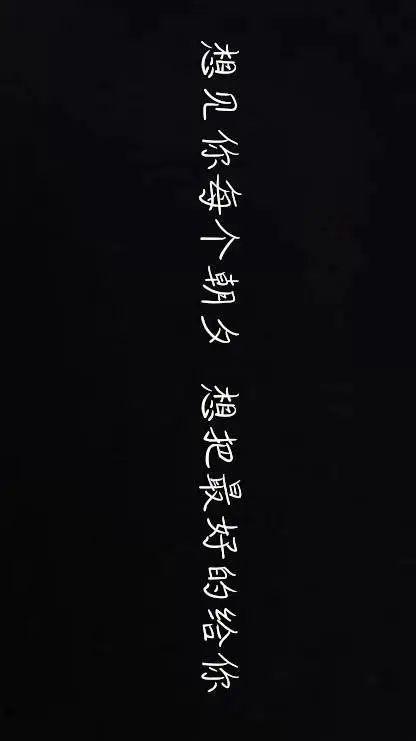 想见你每个朝夕 想把最好的给你